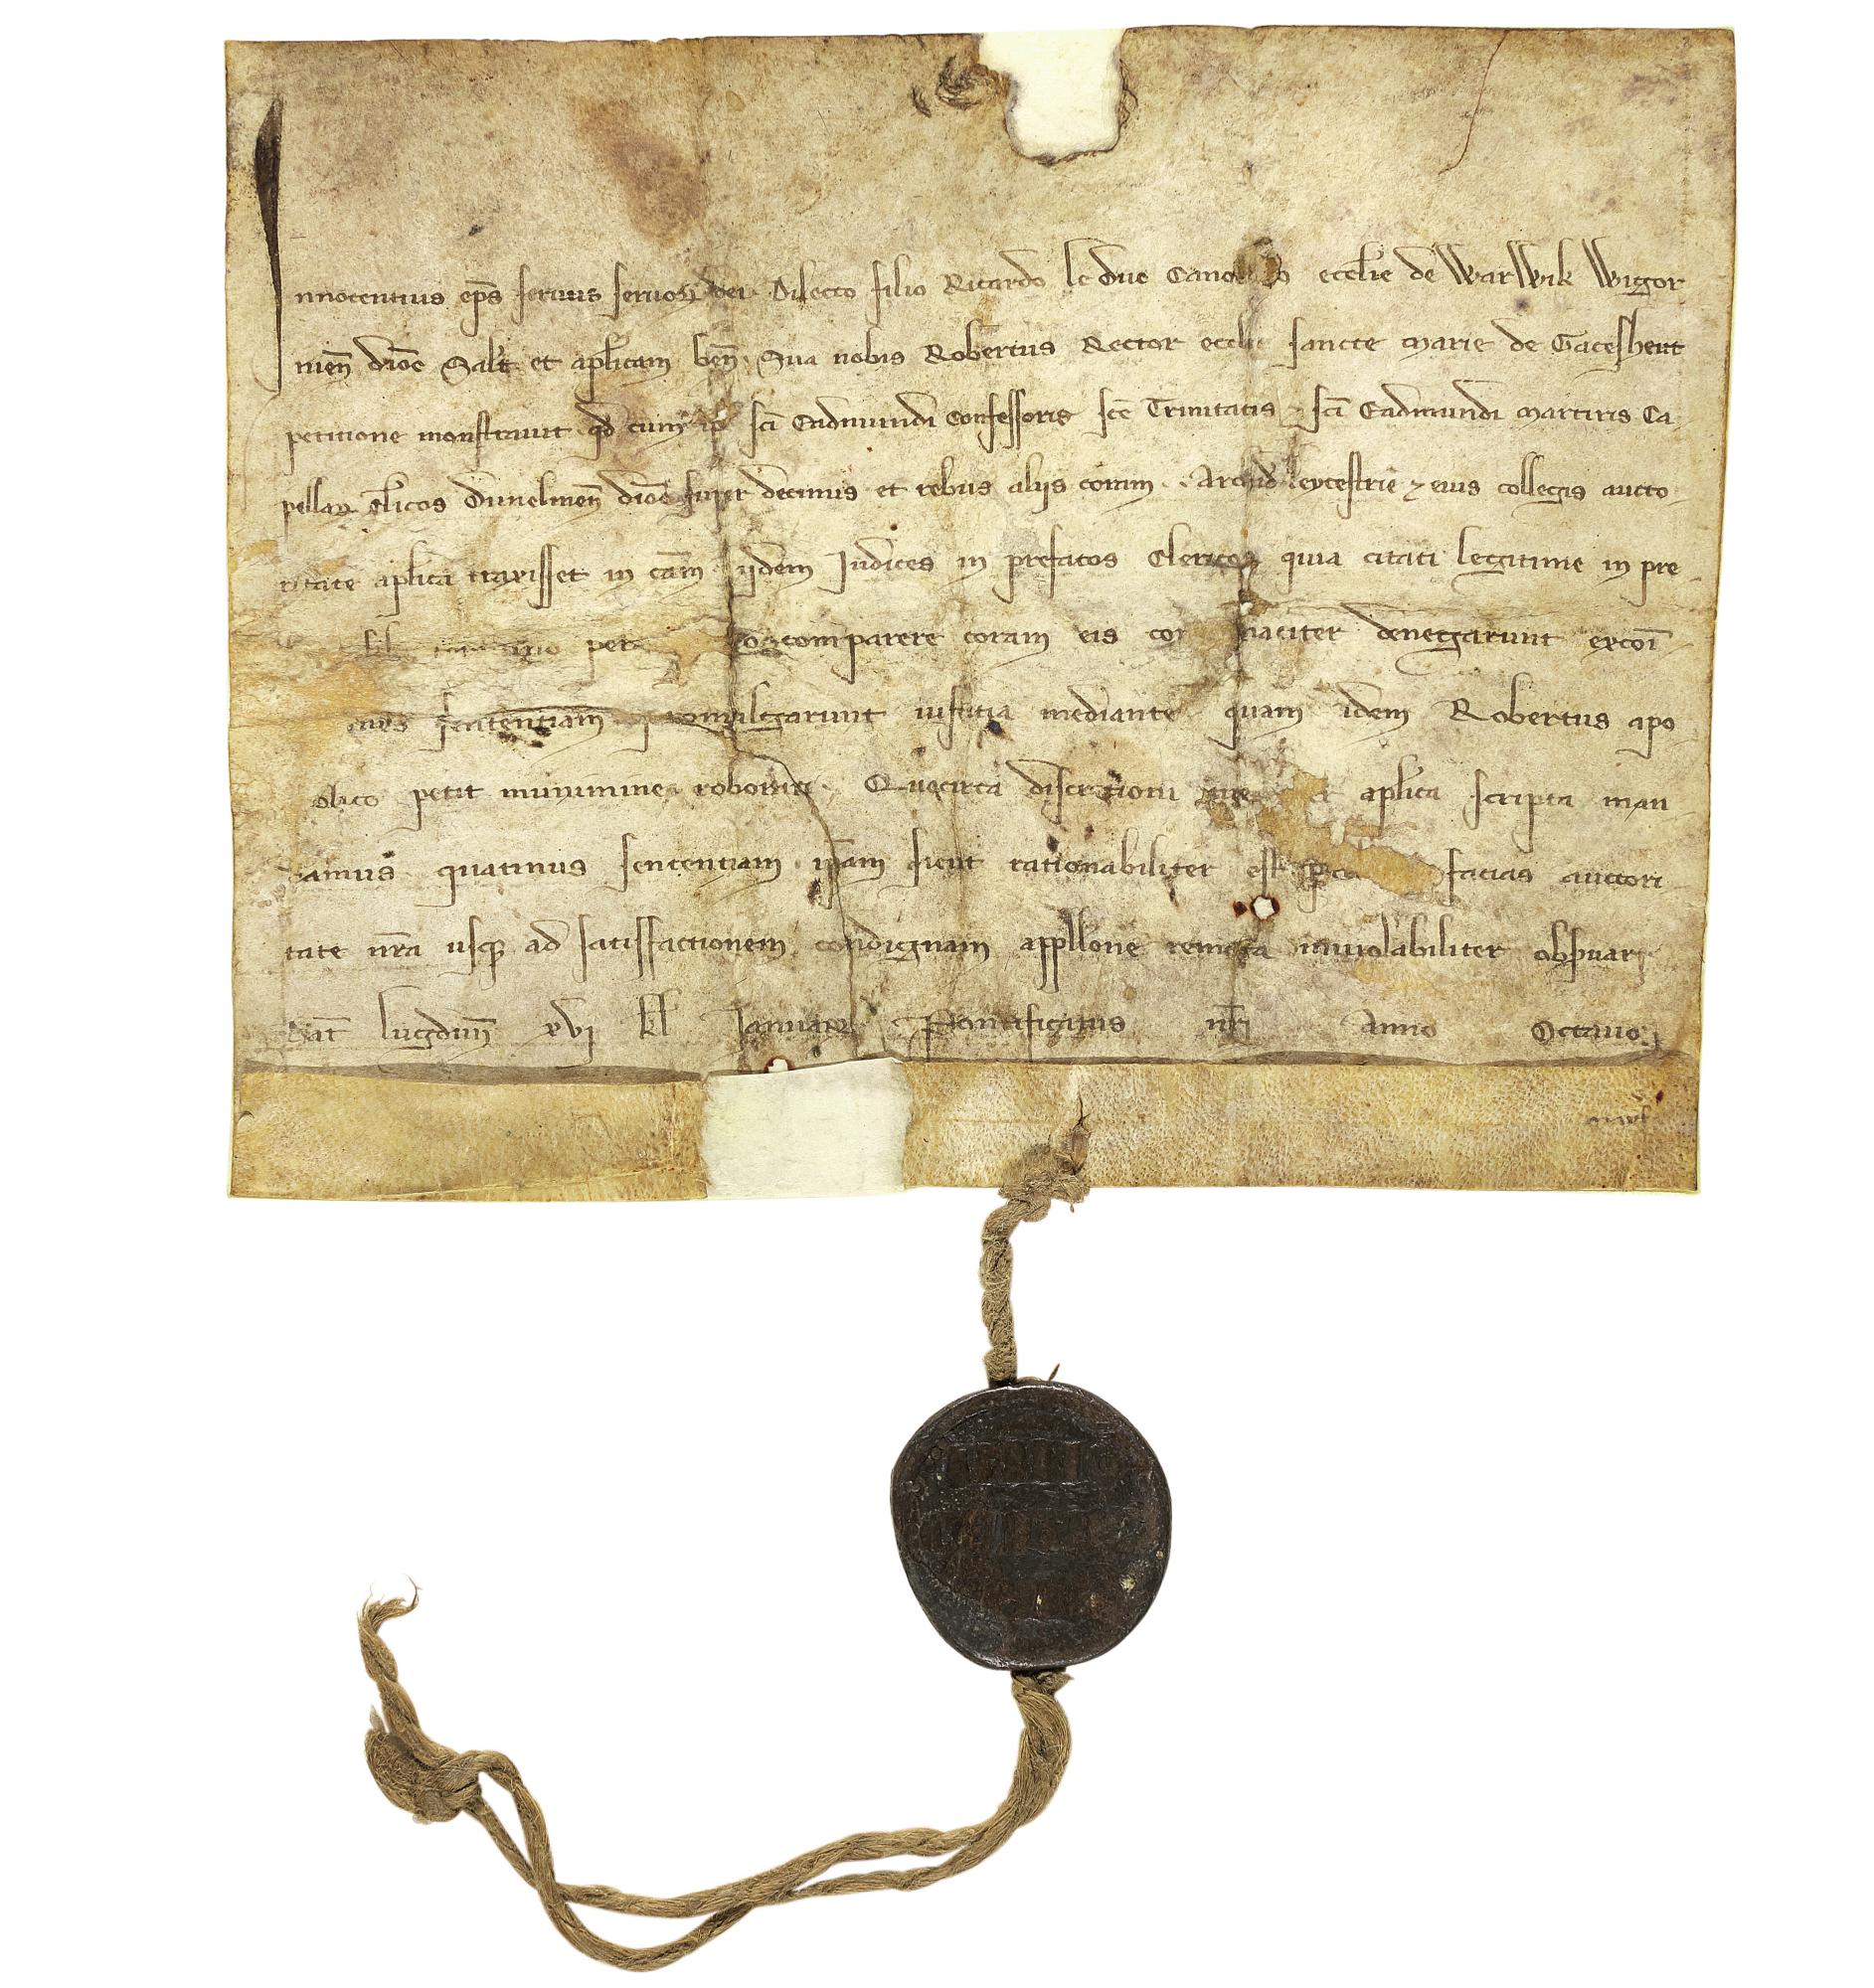 Innocentius ep̅s servus servoꝝ dei Dilecto filio Ricardo le Duc Cano ecclie de WarWyk Wigor
nien̅ dioc̅ Salt̅ et aplicam ben̅ Sua nobis Robertus Rector ecclie sancte Marie de Gatesheut
petitione monstravit qd̅ cum sci̅ Eadmundi Confessoris sce̅ Trinitatis ⁊ sci̅ Eadmundi Martiris Ca
pellaꝝ cl̅icos Dunelmen̅ dioc̅ super decimis et rebus aliis coram Archid̅ leycestrie ⁊ eius collegis aucto
ritate aplica traxisset in cam̅ iidem Iudices in prefatos Clericos quia citati legitime in pre
per comparere coram eis maciter denegarunt excoi̅
sententiam promulgarunt iustitia mediante quam idem Robertus apo
olico petit munimine roborari Quocirca discretioni aplica scripta man
damus quatinus sententiam ip̅am sicut rationabiliter est facias auctori
tate nr̅a usqꝫ ad satisfactionem condignam appll̅one remota inviolabiliter obẜvari
Dat̅ lugdun̅ xvi kl̅ Ianuarii Pontificatus nr̅i Anno Octavo